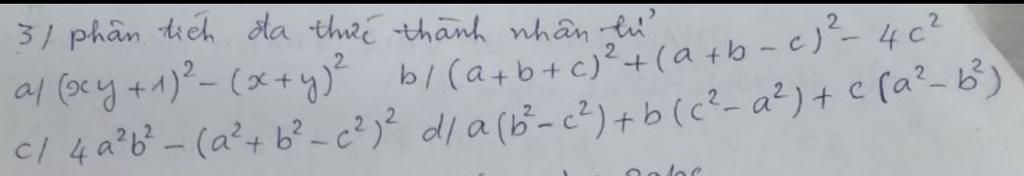 3/ phân tích đa thức thành nhân tử
a/ (xy+1)² - (x+y)² b/ (a+b+c)² + (a+b-c)² - 4c²
c/ 4a²b² - (a²+b²-c²)² d/ a(b²-c²) + b(c²-a²) + c(a²-b²)